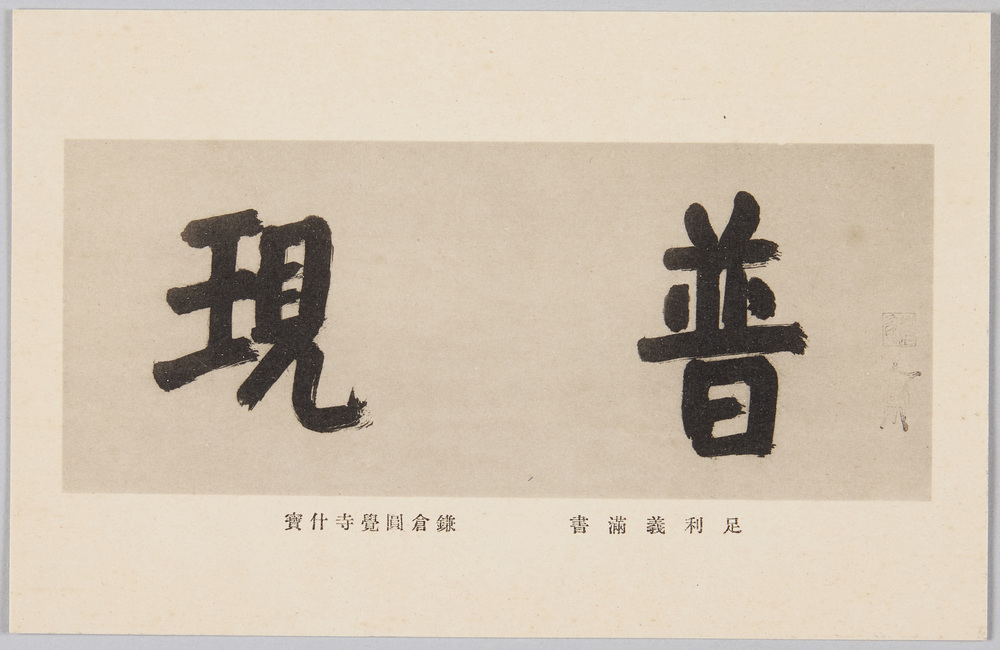 普現
足利義滿書
鎌倉圓覺寺什寶